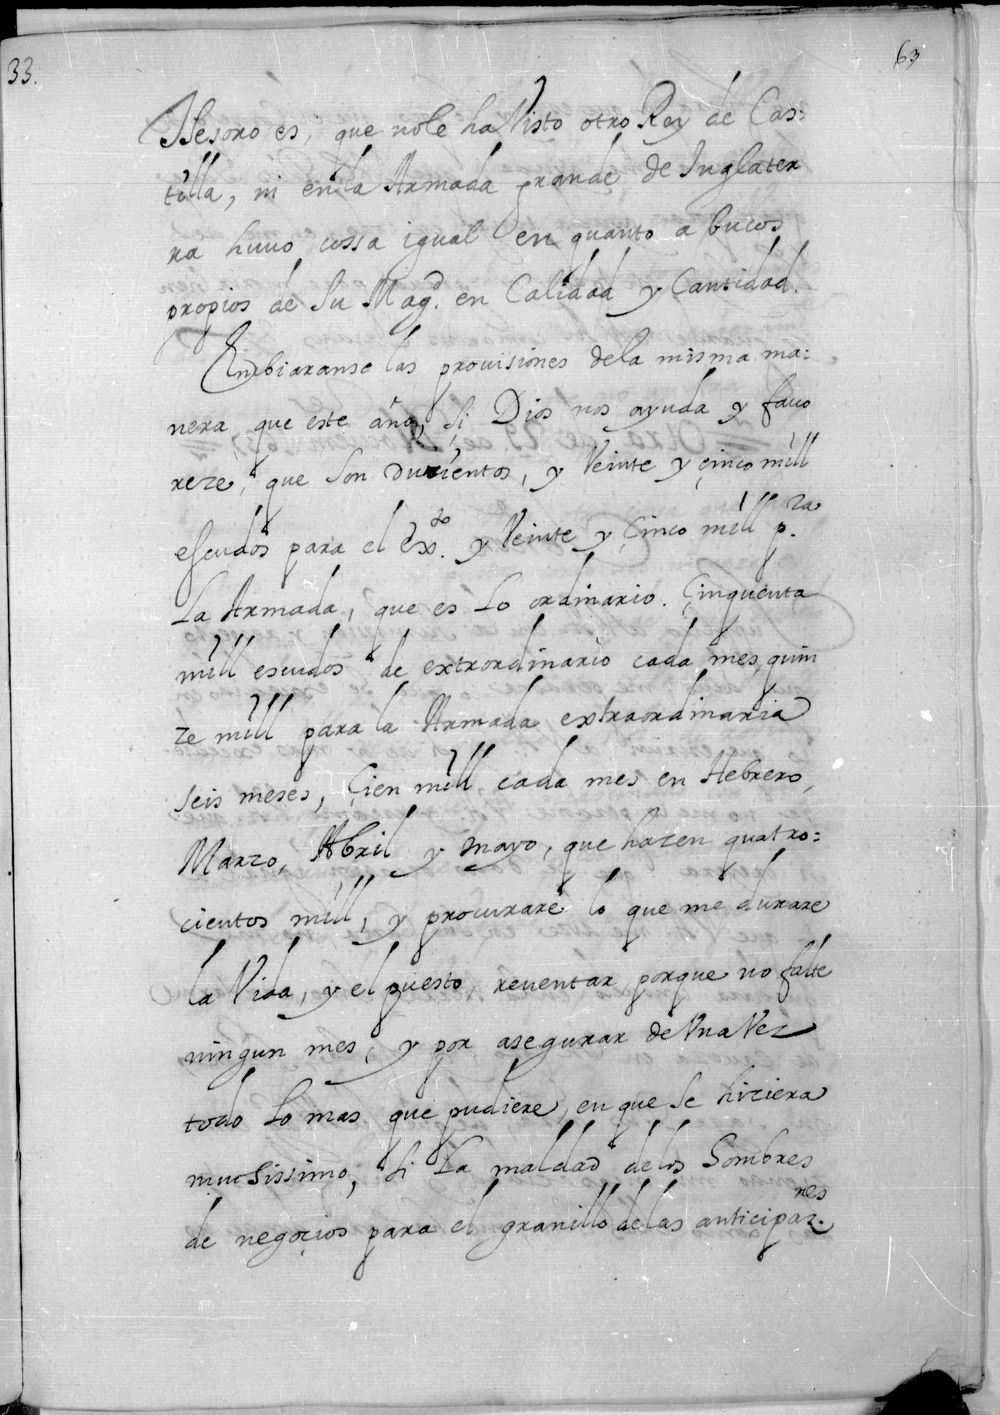 33.
63
Thesoro es, que nole ha Visto otro Rey de Cas:
tilla, ni enla Armada grande, de Inglater
ra huuo cossa igual en quanto a bucos
propios de Su Magd. en Calidad y Cantidad.
Embiaranse las prouisiones dela misma ma:
nera, que este año, Si Dios nos ayuda y fauo
reze, que son ducientos, y Veinte y çinco mill
escudos para el exto. y Veinte y Çinco mill pra.
La Armada, que es Lo ordinario. Çinquenta
mill escudos de extrordinario cada mes, quin
ze mill para la Armada extraordinaria
seis meses, Çien mill cada mes en Hebrero,
Marzo, Abril y mayo, que hazen quatro:
cientos mill, y procurare lo que me durare
la Vida, y el puesto, reuentar porque no falte
ningun mes, y por asegurar de Vna Vez
todo Lo mas que pudiere, en que se hiziera
muchissimo, Si La maldad delos hombres
de negoçios para el granillo delas anticipaznes.